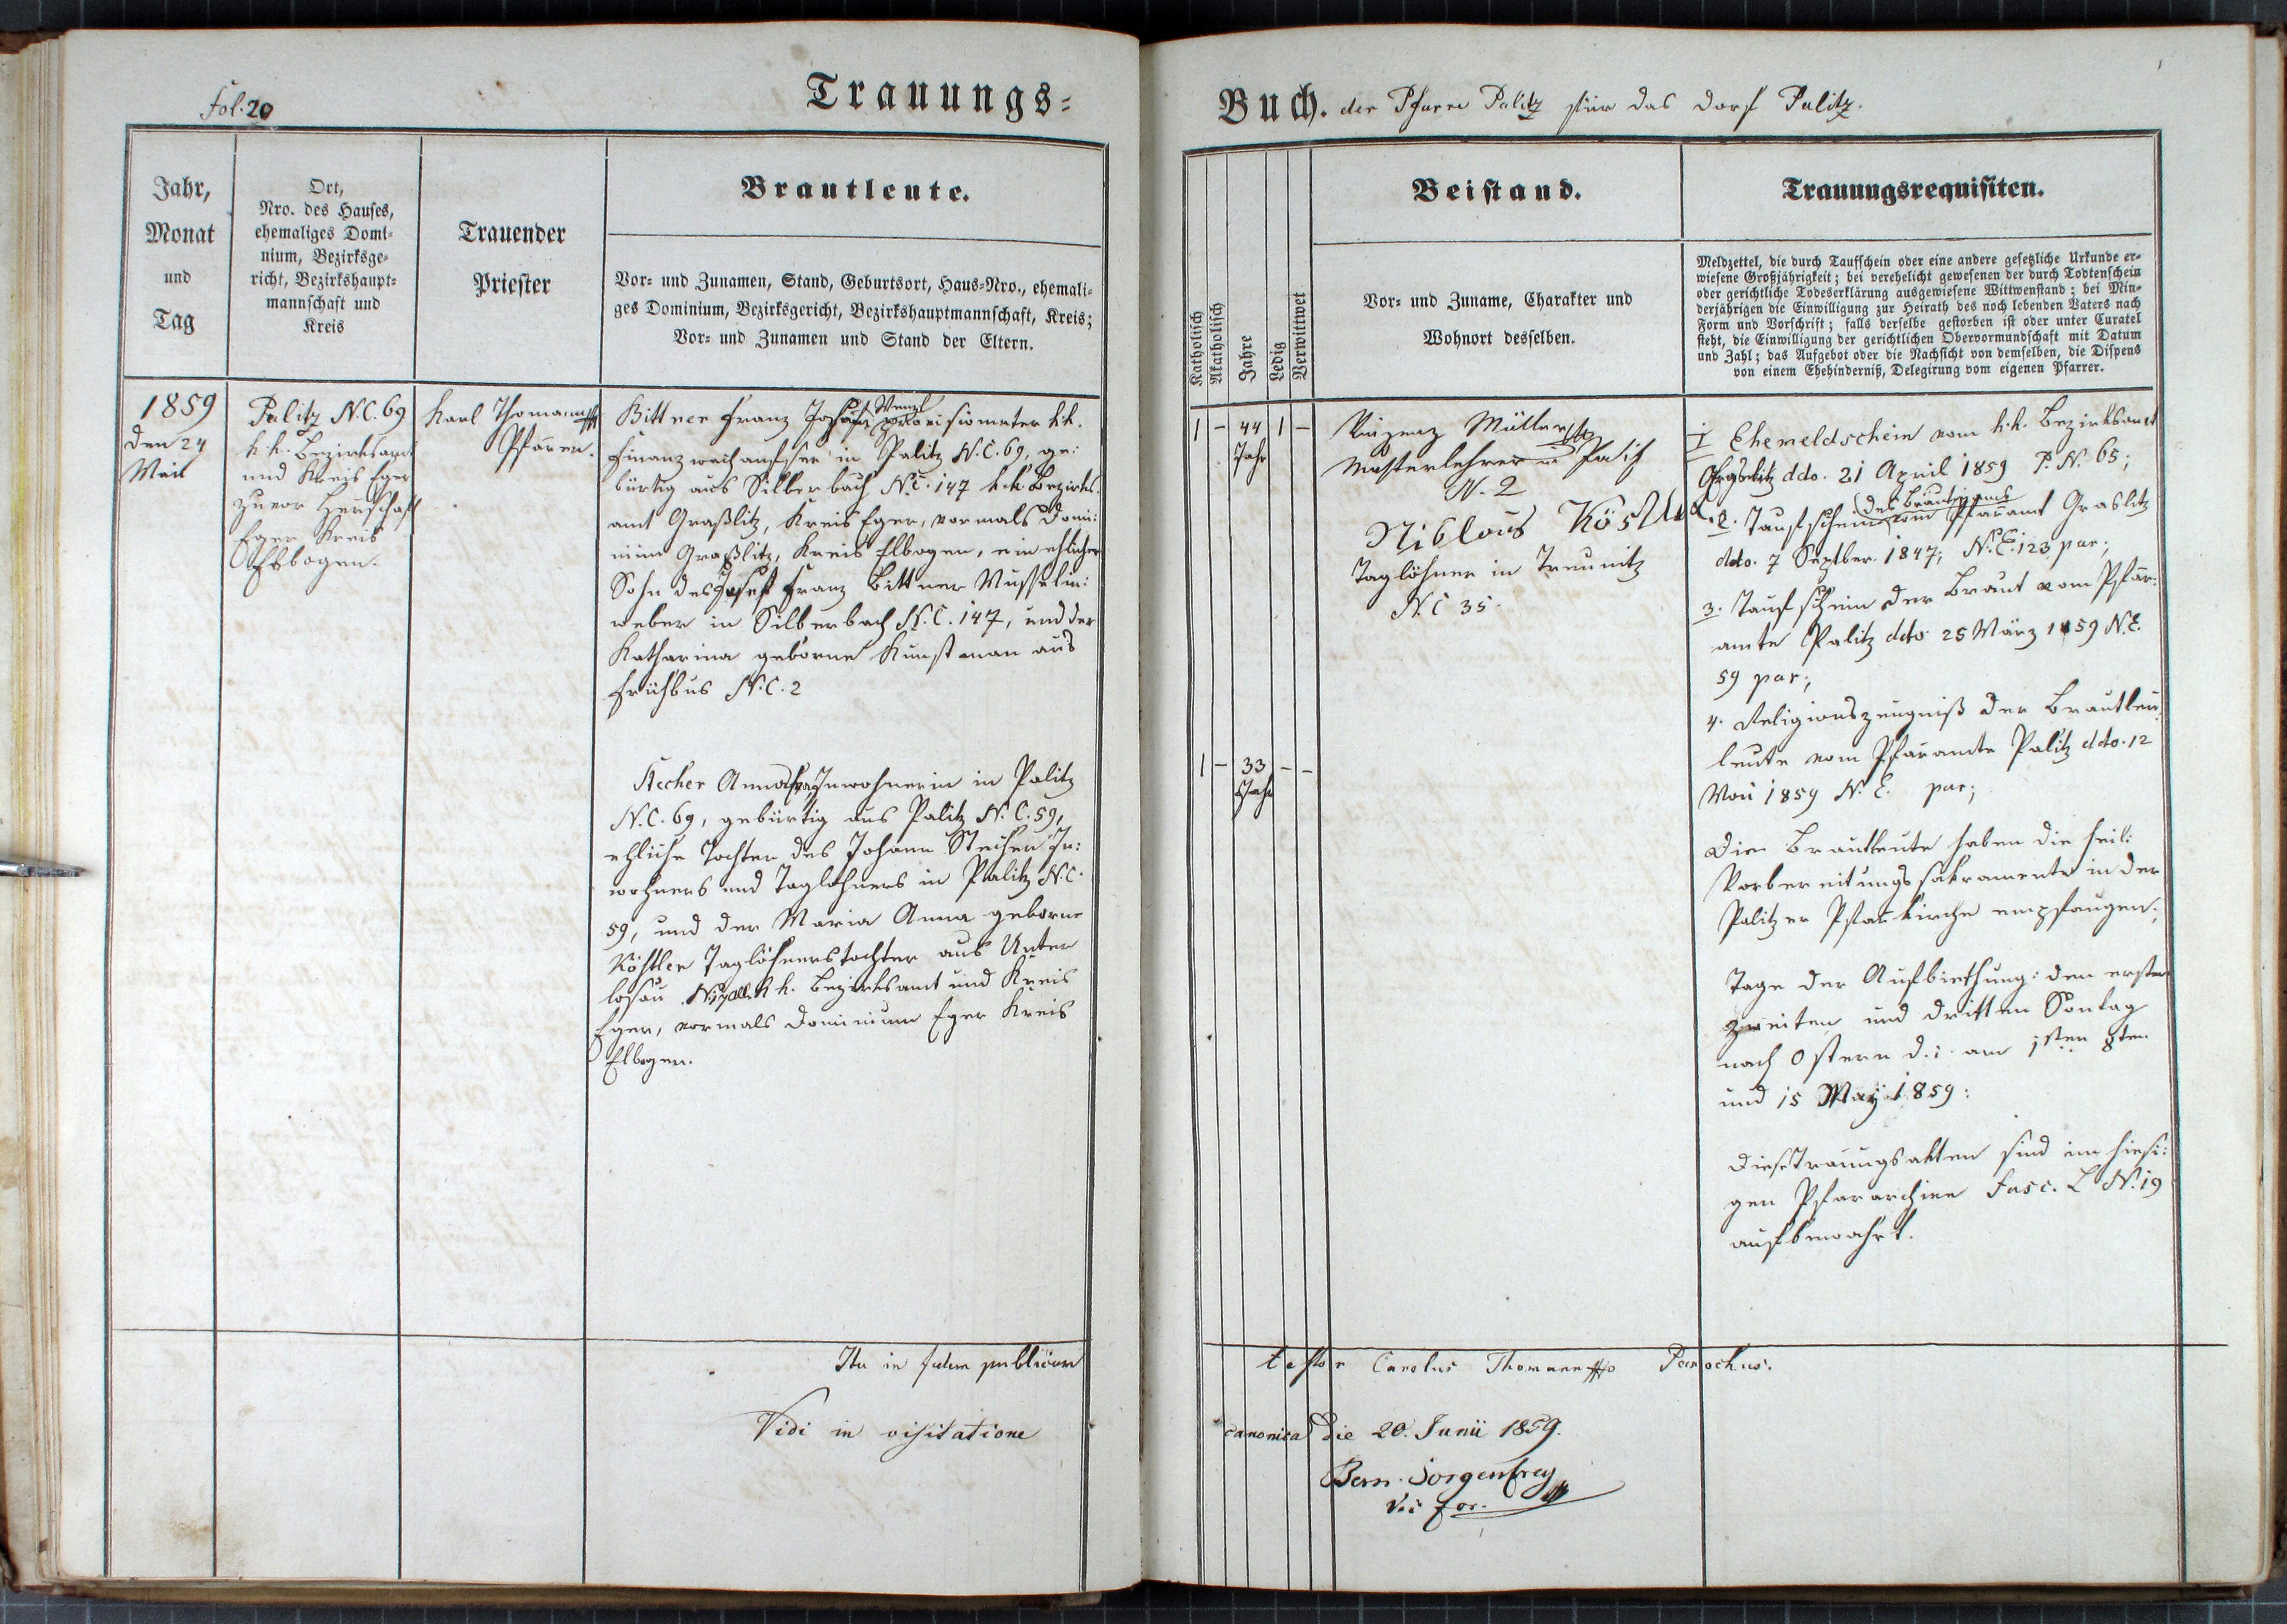 Fol. 20
Trauungs-
Buch. der Pfarre Palitz für das Dorf Palitz.
Jahr,
Monat
und
Tag
Ort,
Nro. des Hauses,
ehemaliges Domi-
nium, Bezirksge-
richt, Bezirkshaupt-
mannschaft und
Kreis
Trauender
Priester
Brautleute.
Vor- und Zunamen, Stand, Geburtsort, Haus-Nro., ehemali-
ges Dominium, Bezirksgericht, Bezirkshauptmannschaft, Kreis;
Vor- und Zunamen und Stand der Eltern.
Katholisch
Akatholisch
Jahre
Ledig
Verwittwet
Beistand.
Vor- und Zuname, Charakter und
Wohnort desselben.
Trauungsrequisiten.
Meldzettel, die durch Taufschein oder eine andere gesetzliche Urkunde er-
wiesene Großjährigkeit; bei verehelicht gewesenen der durch Todtenschein
oder gerichtliche Todeserklärung ausgewiesene Wittwenstand; bei Min-
derjährigen die Einwilligung zur Heirath des noch lebenden Vaters nach
Form und Vorschrift; falls derselbe gestorben ist oder unter Curatel
steht, die Einwilligung der gerichtlichen Obervormundschaft mit Datum
und Zahl; das Aufgebot oder die Nachsicht von demselben, die Dispens
von einem Ehehinderniß, Delegirung vom eigenen Pfarrer.
1859
den 24
Mai
Palitz N.C. 69
k.k. Bezirksamt
und Kreis Eger
zuvor Herrschaft
Eger Kreis
Elbogen.
Karl Thomann
Pfarrer.
Bittner Franz Josef Wenzl provisionirter k.k.
Finanzwachaufseher in Palitz N.C. 69, ge:
bürtig aus Silberbach N.C. 147 k.k. Bezirks
amt Graßlitz, Kreis Eger, vormals Domi:
nium Graßlitz, Kreis Elbogen, ein ehlicher
Sohn des Josef Franz Bittner Musselin:
weber in Silberbach N.C. 147, und der
Katharina geborne Kunstman aus
Frühbus N.C. 2
Stecher Anna Inwohnerin in Palitz
N.C. 69, gebürtig aus Palitz N.C. 59,
ehliche Tochter des Johann Stecher In:
wohners und Taglöhners in Palitz N.C.
59, und der Maria Anna geborne
Köstler Taglöhnerstochter aus Unter
losau k.k. Bezirksamt und Kreis
Eger, vormals Dominium Eger Kreis
Elbogen.
1 – 44 1 –
Jahr
1 – 33 – –
Jahr
Vinzenz Müller
Musterlehrer in Palitz
N. 2
Niklaus Köstler
Taglöhner in Treunitz
N.C 35.
1 Ehemeldschein vom k.k. Bezirksamt
Graslitz ddo. 21 April 1859 P. N. 65;
2. Taufschein des Bräutigams vom Pfarramt Graslitz
ddo. 7 Septber. 1847; N.E. 123 par;
3. Taufschein der Braut vom Pfar:
amte Palitz ddo 25 März 1859 N.E.
59 par;
4. Religionszeugniß der Brautleu
leute vom Pfarramte Palitz ddo. 12
Mai 1859 N. E. par;
Die Brautleute haben die heil:
Vorbereitungssakramente in der
Palitzer Pfarrkirche empfangen;
Tage der Aufbiethung: den ersten
zweiten und dritten Sontag
nach Ostern d.i. am 1ten 8ten
und 15 May 1859:
Diese Trauungsakten sind im hiesi:
gen Pfararchive Fasc. L N. 19
aufbewahrt.
Ita in fidem publicam
testor Carolus Thomann Parochus.
Vidi in visitatione
canonica die 20. Junii 1859.
Bern. Sorgenfrey
Vic for.